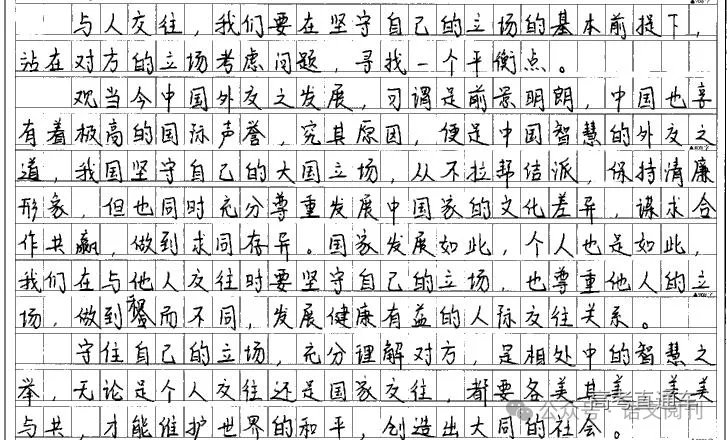 与人交往，我们要在坚守自己的立场的基本前提下，
站在对方的立场考虑问题，寻找一个平衡点。
观当今中国外交之发展，可谓是前景明朗，中国也享
有着极高的国际声誉，究其原因，便是中国智慧的外交之
道，我国坚守自己的大国立场，从不拉帮结派，保持清廉
形象，但也同时充分尊重发展中国家的文化差异，谋求合
作共赢，做到求同存异。国家发展如此，个人也是如此，
我们在与他人交往时要坚守自己的立场，也尊重他人的立
场，做到和而不同，发展健康有益的人际交往关系。
守住自己的立场，充分理解对方，是相处中的智慧之
举，无论是个人交往还是国家交往，都要各美其美，美美
与共，才能维护世界的和平，创造出大同的社会。
高考直通车
公众号 语文阅刊